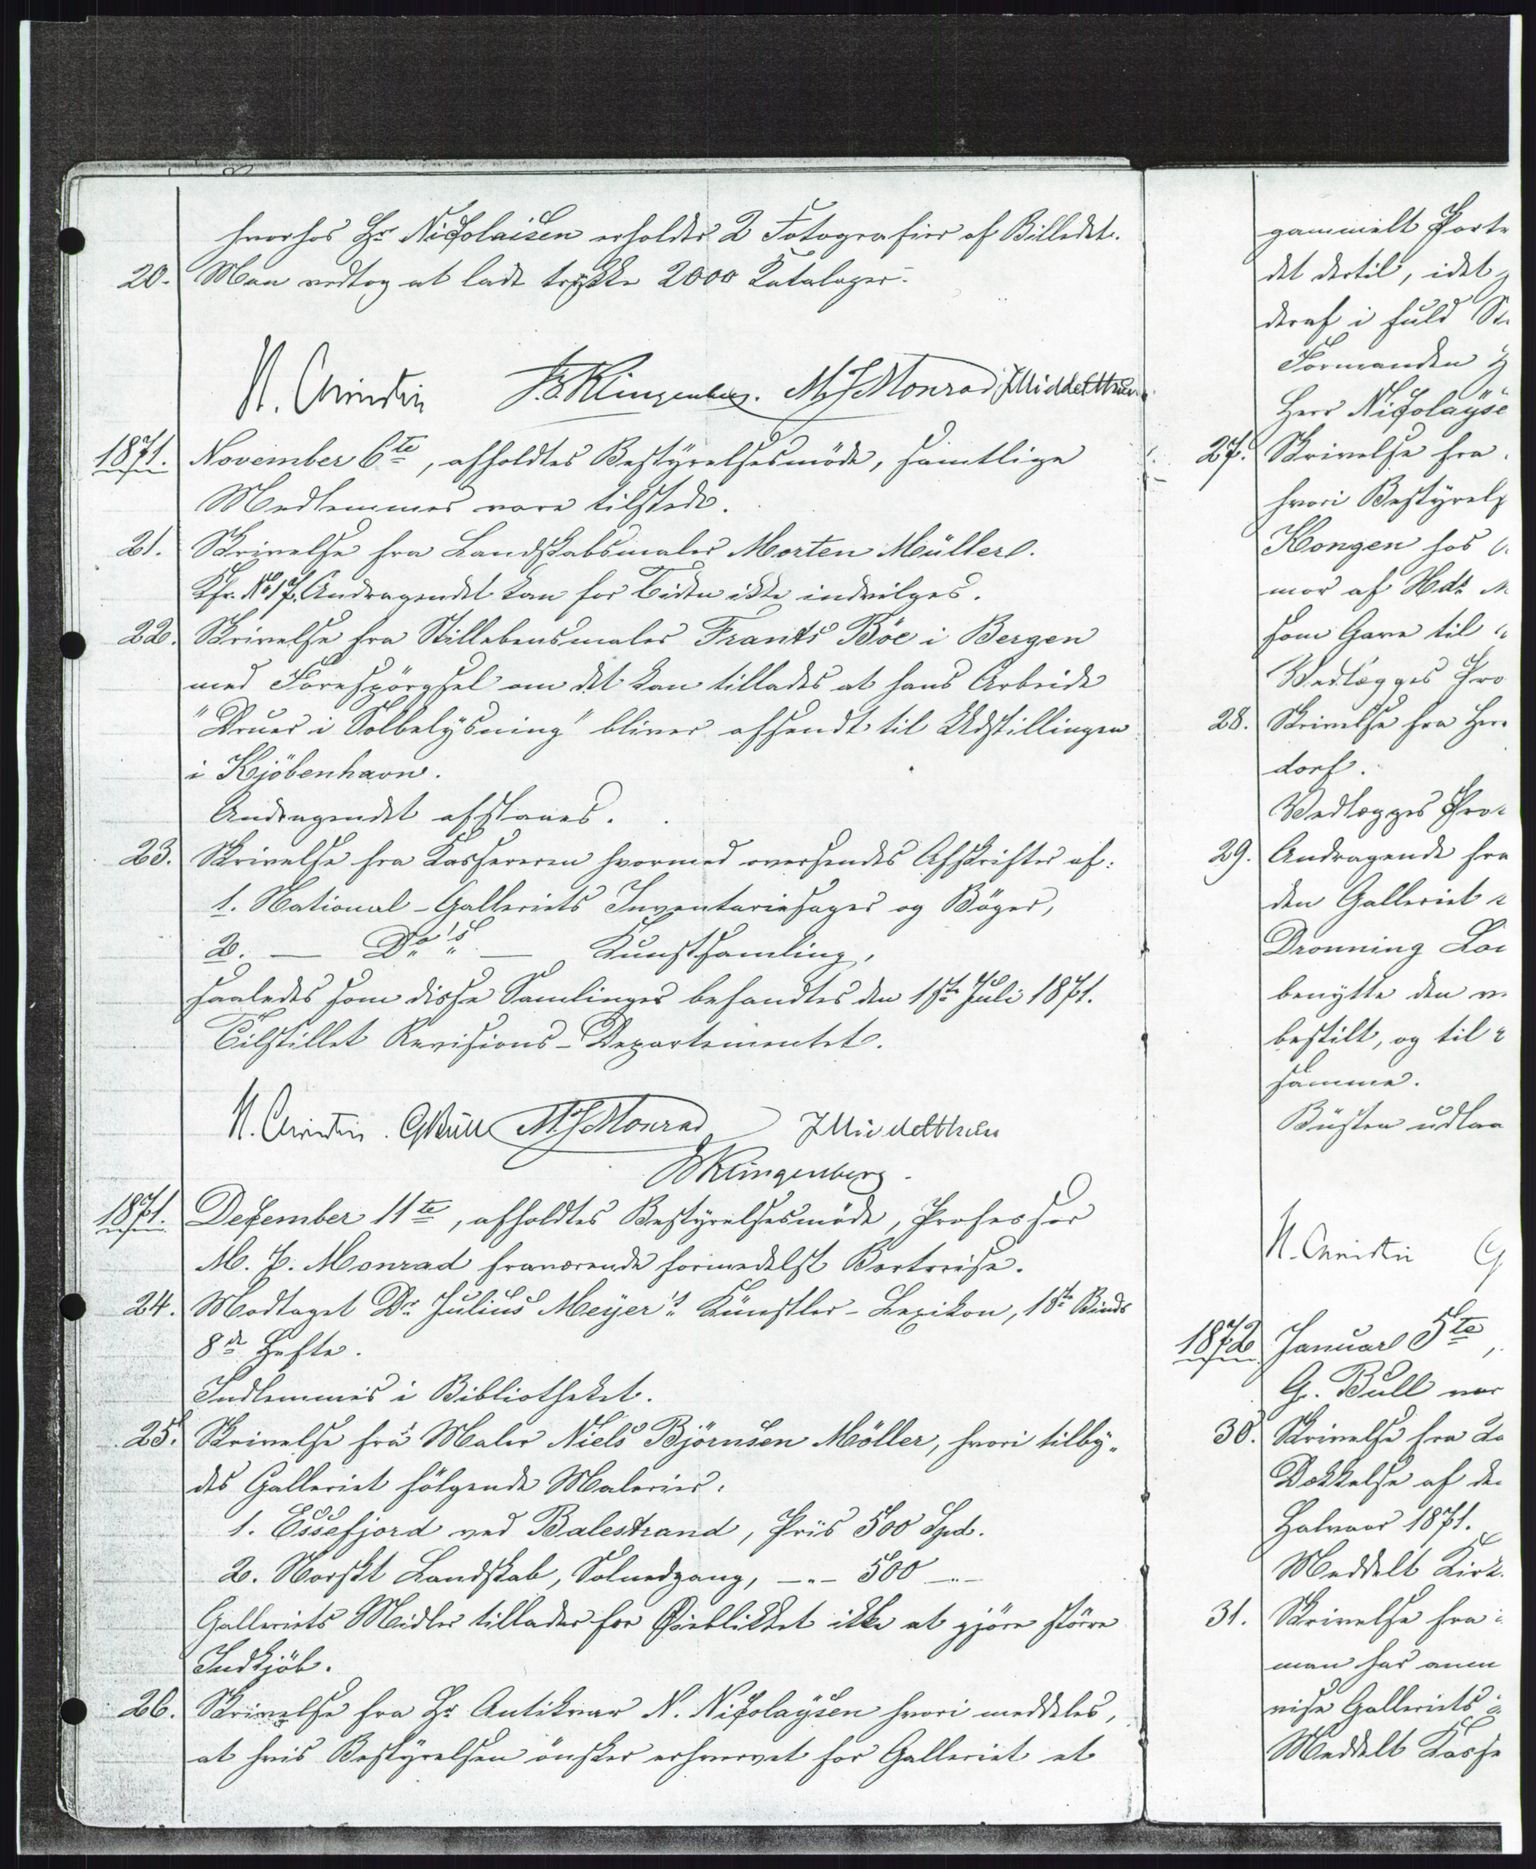 hvorhos Hr Nicolaisen erholder 2 Fotografier af Billedet.
20. Man vedtog at lade trykke 2000 Kataloger.
H. Christie F. Klingenberg. M. J. Monrad J Middelthun
1871. November 6te, afholdtes Bestyrelsesmöde, samtlige
Medlemmer vare tilstede.
21. Skrivelse fra Landskabsmaler Morten Müller.
Kfr. No 17. Andragendet kan for Tiden ikke indvilges.
22. Skrivelse fra Stillebensmaler Frants Böe i Bergen
med Forespörgsel om det kan tillades at hans Arbeide
"Druer i Solbelysning" bliver afsendt til Udstillingen
i Kjöbenhavn.
Andragendet afslaaes.
23. Skrivelse fra Kassereren hvormed oversendes Afskrifter af:
1. National-Galleriets Inventariesager og Böger,
2. — Do's — Kunstsamling,
saaledes som disse Samlinger befandtes den 1ste Juli 1871.
Tilstillet Revisions-Departementet.
H. Christie. G Bull M. J Monrad J Middelthun
F Klingenberg.
1871. December 11te, afholdtes Bestyrelsesmöde, Professor
M. J. Monrad fraværende formedelst Bortreise.
24. Modtaget Dr Julius Meyer's Künstler-Lexikon, 1ste Binds
8de Hefte.
Indlemmes i Bibliotheket.
25. Skrivelse fra Maler Niels Björnsen Möller, hvori tilby„
des Galleriet fölgende Malerier:
1. Essefjord ved Balestrand, Priis 500 Spd.
2. Norskt Landskab, Solnedgang, —„— 500 —„—
Galleriets Midler tillader for Öieblikket ikke at gjöre större
Indkjöb.
26. Skrivelse fra Hr Antikvar N. Nicolaysen hvori meddeles,
at hvis Bestyrelsen önsker erhvervet for Galleriet et
gammelt Portr
det dertil, idet
deraf i fuld St
Formanden
Herr Nicolayse
27. Skrivelse fra
hvori Bestyrels
Kongen hos
mor af Hds M
som Gave til
Vedlægges Pro
28. Skrivelse fra Herr
dorf.
Vedlægges Pro
29. Andragende fra
den Galleriet
Dronning Lov
benytte den
bestilt, og til
samme.
Büsten udlaa
H. Christie G
1872 Januar 5te,
G. Bull var
30. Skrivelse fra
Dækkelse af de
Halvaar 1871.
Meddelt Kirk
31. Skrivelse fra
man har anm
vise Galleriets
Meddelt Kasse